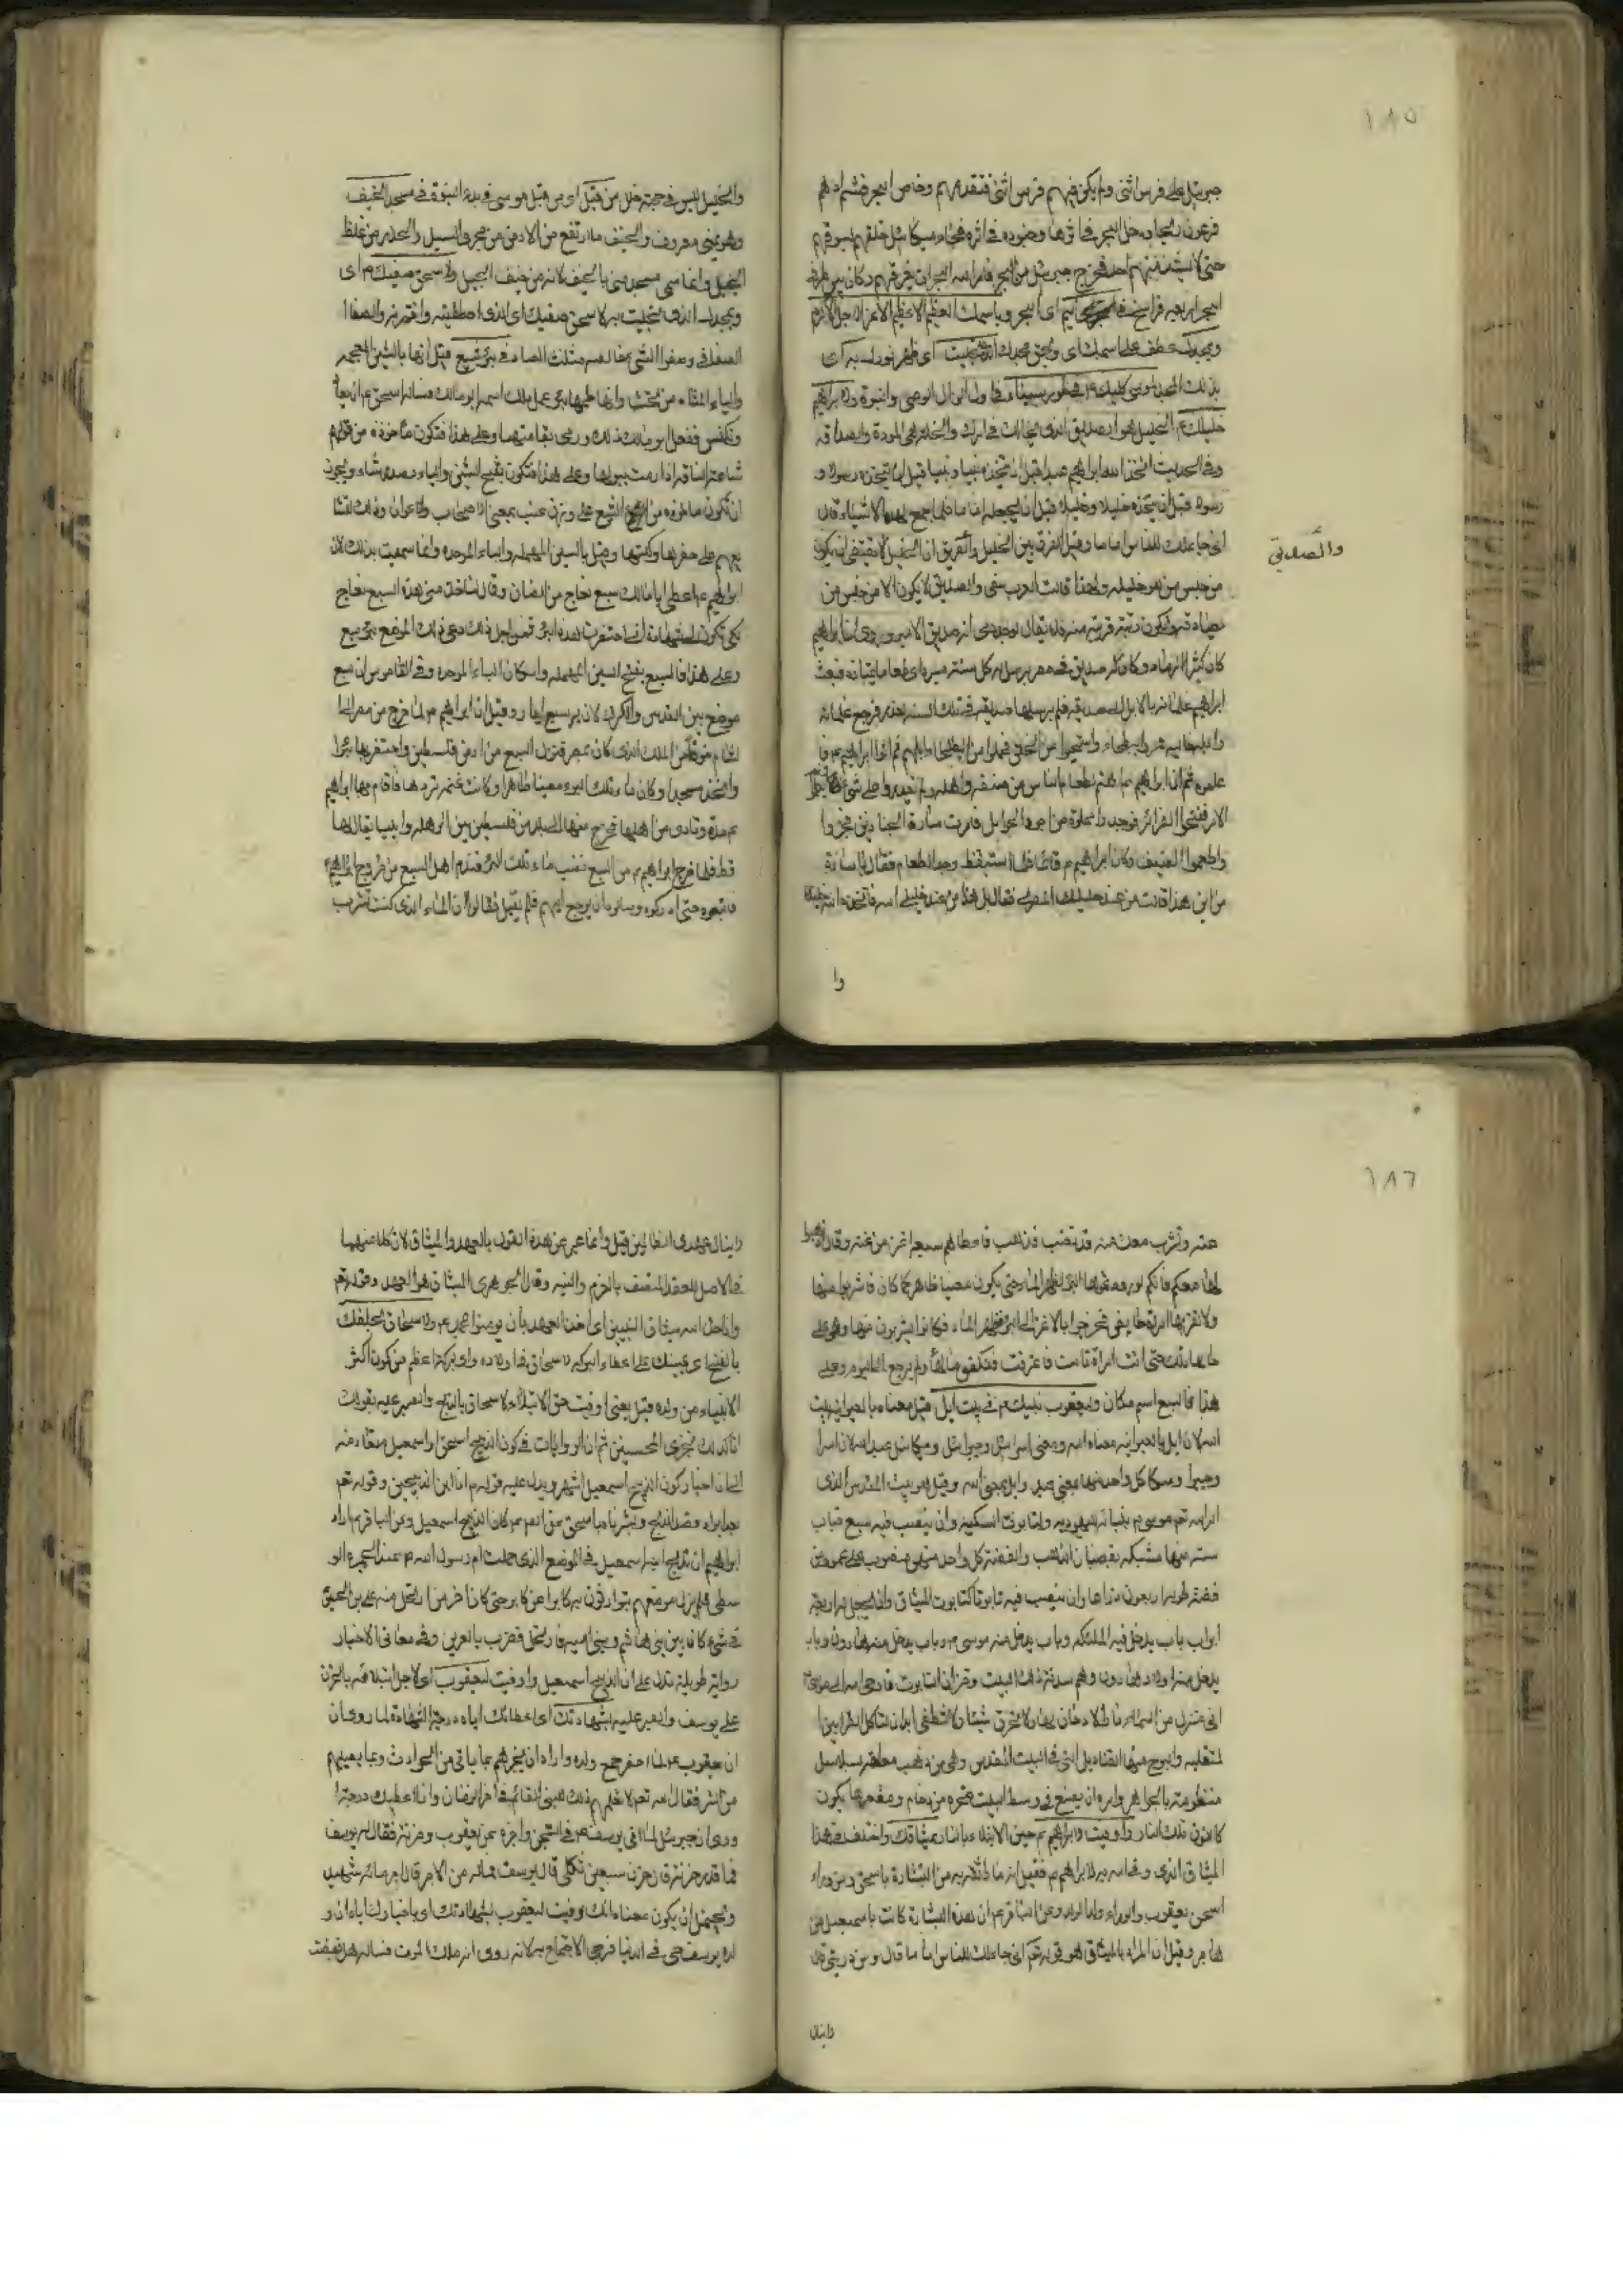 ١٨٥
جبرئيل على فرس انثى ولم يكن فيهم فرس انثى فتقدمهم وخاض البحر فشم ادهم
فرعون ريحها ودخل البحر في اثرها وجنوده في اثره فجاء ميكائيل خلفهم يسوقهم
حتى لا يشذ منهم احد فخرج جبرئيل من البحر فامر الله البحر ان يغرقهم وكان بين طرفي
البحر اربعة فراسخ اي البحر وباسمك العظيم الاعظم الاعز الاجل الاكرم
وبمجدك عطف على اسمك اي وبحق مجدك الذي تجليت اي ظهر نورك به اي
بذلك المجد لموسى كليمك ع في طور سيناء في اول انوال الوحي والنبوة ولابراهيم
خليلك ع الخليل هو الصديق الذي يخالك في امرك والخلة هي المودة والصداقة
وفي الحديث اتخذ الله ابراهيم عبدا قبل ان يتخذه نبيا ونبيا قبل ان يتخذه رسولا و
رسولا قبل ان يتخذه خليلا وخليلا قبل ان يجعله اماما فلما جمع له الاشياء قال
اني جاعلك للناس اماما وقيل الفرق بين الخليل والصديق ان الخليل لا يقتضي ان يكون
والصديق
من جنس من هو خليله ولهذا قالت العرب سفي والصديق لا يكون الا من جنس من
يصادقه ويكون رتبته قريبة منه فلا يقال لوجدي انه صديق الامير وروي ان ابراهيم
كان كثير الرماد وكان له صديق في مصر يرسل له كل سنة ميرة اي طعاما يقتاته فبعث
ابراهيم غلمانه بالابل الى صديقه فلم يرسلها صديقه في تلك السنة بعذر فرجع غلمانه
والابل خالية فمروا ببطحاء واستحيوا من الخلق فملؤا من البطحاء وابلهم ثم اتوا ابراهيم ع فا
علموه ثم ان ابراهيم ع اهتم لطعام الناس من ضيفه واهله ولم يقدروا على شئ
الامر ففتحوا الغرائر فوجد دقيقا من اجود فامرت سارة الخبازين فخبزوا
واطعموا الضيف وكان ابراهيم ع نائما فلما استيقظ وجد الطعام فقال يا سارة
من اين هذا قالت من عند خليلك المصري فقال بل هذا من عند خليلي الله فاتخذه الله خليلا
وا
والخليل ليس في حجته خلل من قبل اي من قبل موسى في بدء النبوة في مسجد الخيف
وهو بمنى معروف والخيف ما ارتفع من الارض من مجرى السيل وانحدر من غلظ
الجبل وانما سمي مسجد منى بالخيف لانه من خيف الجبل ولاسحق صفيك ع اي
وبمجدك الذي تجليت به لاسحق صفيك اي الذي اصطفيته واخترته والصفا
الصفاء وصفوا الشئ خالصه مثلث الصاد في بئر شيع قيل انها بالشين المعجمة
والياء المثناة من تحت وانها طمها بجوع عمل ملك اسمه ابو مالك فساله اسحق ع ان يعبأ
وتكنس ففعل ابو مالك ذلك ورمى بقامتها وعلى هذا فتكون ماخوذة من قولهم
شاعت الناقة اذا رمت ببولها وعلى هذا فتكون بفتح الشين والياء مصدر شاء ويجوز
ان تكون ماخوذة من الشيع على وزن عنب بمعنى الاصحاب والاعوان وذلك لتشا
يعهم على حفرها وكنسها وقيل بالسين المهملة والباء الموحدة وانما سميت بذلك لان
ابراهيم ع اعطى ابا مالك سبع نعاج من الضان وقال لتاخذ مني هذه السبع نعاج
لكي تكون لي شهادة اني احتفرت هذه البئر فمن اجل ذلك دعي ذلك الموضع بئر سبع
وعلى هذا فالسبع بفتح السين المهملة واسكان الباء الموحدة وفي القاموس ان سبع
موضع بين القدس والكرك لان بئر سبع ابيار وقيل ان ابراهيم ع لما خرج من مصر الى
الشام خوفا من الملك الذي كان بمصر فنزل السبع من ارض فلسطين واحتفر بها بئرا
واتخذ مسجدا وكان ماء تلك البئر معينا طاهرا وكانت غنمه تردها فاقام بها ابراهيم
ع مدة وتاذى من اهلها فخرج منها الى بلد من فلسطين بين الرملة وايليا يقال لها
قط فلما خرج ابراهيم ع من السبع نضب ماء تلك البئر فندم اهل السبع من خروج ابراهيم
فاتبعوه حتى ادركوه وسالوه ان يرجع اليهم فلم يقبل فقالوا ان الماء الذي كنت تشرب
١٨٦
منه ونشرب معك منه قد نضب فذهب فاعطاهم سبع اعنز من غنمه وقال اذهبوا
بها معكم فانكم لو اوردتموها البئر ظهر الماء حتى يكون معينا طاهرا كما كان فاشربوا منها
ولا تقربها امراة حائض فخرجوا بالاعنز الى البئر فظهر الماء فكانوا يشربون منها وهي على
حالها تلك حتى اتت امراة طامث فاغترفت فنكص ماؤها ولم يرجع الى اليوم وعلى
هذا فالسبع اسم مكان وليعقوب نبيك ع في بيت ايل قيل معناه بالعبرانية بيت
الله لان ايل بالعبرانية معناه الله ومعنى اسرائيل وجبرائيل وميكائيل عبد الله لان اسرا
وجبرا وميكا كل واحد منها بمعنى عبد وايل بمعنى الله وقيل هو بيت المقدس الذي
امر الله تع موسى ع ببنائه للعبودية ولتابوت السكينة وان ينصب فيه سبع قباب
ستة منها مشبكة بقضبان الذهب والفضة كل واحد منهن منصوب على عمود من
فضة طوله اربعون ذراعا وان ينصب فيه تابوتا كتابوت الميثاق وان يجعل له اربعة
ابواب باب يدخل فيه الملئكة وباب يدخل منه موسى ع وباب يدخل منه هارون وباب
يدخل منه اولاد هارون وهم سدنة ذلك البيت وخزان التابوت فاوحى الله الى موسى
اني منزل من السماء نارا لا دخان لها ولا تحرق شيئا ولا تنطفى ابدا لتاكل القرابين
المتقبلة وليسرج منها القناديل التي في البيت المقدس وهي من ذهب معلقة بسلاسل
منظومة بالجواهر وامره ان يضع في وسط البيت صخرة من رخام ومقعرها يكون
كانون تلك النار واوفيت لابراهيم ع حين الابتلاء بالنار بميثاقك واختلف في هذا
الميثاق الذي وفى الله به لابراهيم ع فقيل انه ما اخبر به من البشارة باسحق ومن وراء
اسحق يعقوب والوراء ولد الولد وعن الباقر ع ان هذه البشارة كانت باسمعيل من
هاجر وقيل ان المراد بالميثاق هو قوله تع اني جاعلك للناس اماما قال ومن ذريتي قال
لا ينال
لا ينال عهدي الظالمين قيل وانما عبر عن هذه القول بالعهد والميثاق لان كلا منهما
في الاصل للعقد المتصف بالحزم والنية وقال الجوهري الميثاق هو العهد وقوله تع
واذ اخذ الله ميثاق النبيين اي اخذ العهد بان يؤمنوا بمحمد ع ولاسحاق بحلفك
بالفتح اي بيمينك على اعطاء البركة لاسحاق في اولاده واي بركة اعظم من كون اكثر
الانبياء من ولده قيل يعني اوفيت حق الابتلاء لاسحاق بالذبح والتعبير عليه بقولك
انا كذلك نجزي المحسنين ثم ان الروايات في كون الذبيح اسحق او اسمعيل متعارضة
الا ان اخبار كون الذبيح اسمعيل اشهر ويدل عليه قوله ع انا ابن الذبيحين وقوله تع
بعد ايراد قصة الذبح وبشرناه باسحق وعن الصادق ع كان الذبيح اسمعيل وعن الباقر ع اراد
ابراهيم ان يذبح ابنه اسمعيل في الموضع الذي حملت ام رسول الله ع عند الجمرة الو
سطى فلم يزل موضعهم يتوارثون به كابرا عن كابر حتى كان اخر من ارتحل منه علي بن الحسين
في شئ كان بين بني هاشم وبني امية فارتحل فضرب بالعرين وفي معاني الاخبار
رواية طويلة تدل على ان الذبيح اسمعيل واوفيت ليعقوب اي لاجل ابتلائه بالحزن
على يوسف والصبر عليه بشهادتك اي اعطائك اياه درجة الشهادة لما روي ان
ان يعقوب ع لما احتضر جمع ولده واراد ان يخبرهم بما ياتي من الحوادث وبما يصيبهم
من الشر فقال الله تع لا تعلمهم ذلك يعني القائم في اخر الزمان وانا اعطيك درجة
وروي ان جبرئيل لما اتى يوسف ع في السجن واخبره عن يعقوب وحزنه فقال له يوسف
فما قدر حزنه قال حزن سبعين ثكلى قال يوسف فماله من الاجر قال اجر مائة شهيد
ويحتمل ان يكون معناه انك وفيت ليعقوب بشهادتك اي باخبارك اياه ان و
لده يوسف حي في الدنيا فرجى الاجتماع به لانه روي انه راى ملك الموت فساله هل قبضت